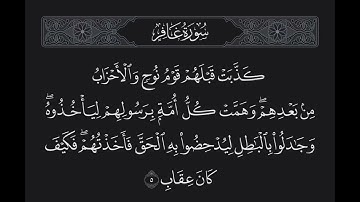 سُورَةُ غَافِرٍ
كَذَّبَتْ قَبْلَهُمْ قَوْمُ نُوحٍ وَٱلْأَحْزَابُ
مِنۢ بَعْدِهِمْ ۖ وَهَمَّتْ كُلُّ أُمَّةٍۭ بِرَسُولِهِمْ لِيَأْخُذُوهُ ۖ
وَجَٰدَلُوا۟ بِٱلْبَٰطِلِ لِيُدْحِضُوا۟ بِهِ ٱلْحَقَّ فَأَخَذْتُهُمْ ۖ فَكَيْفَ
كَانَ عِقَابِ ٥